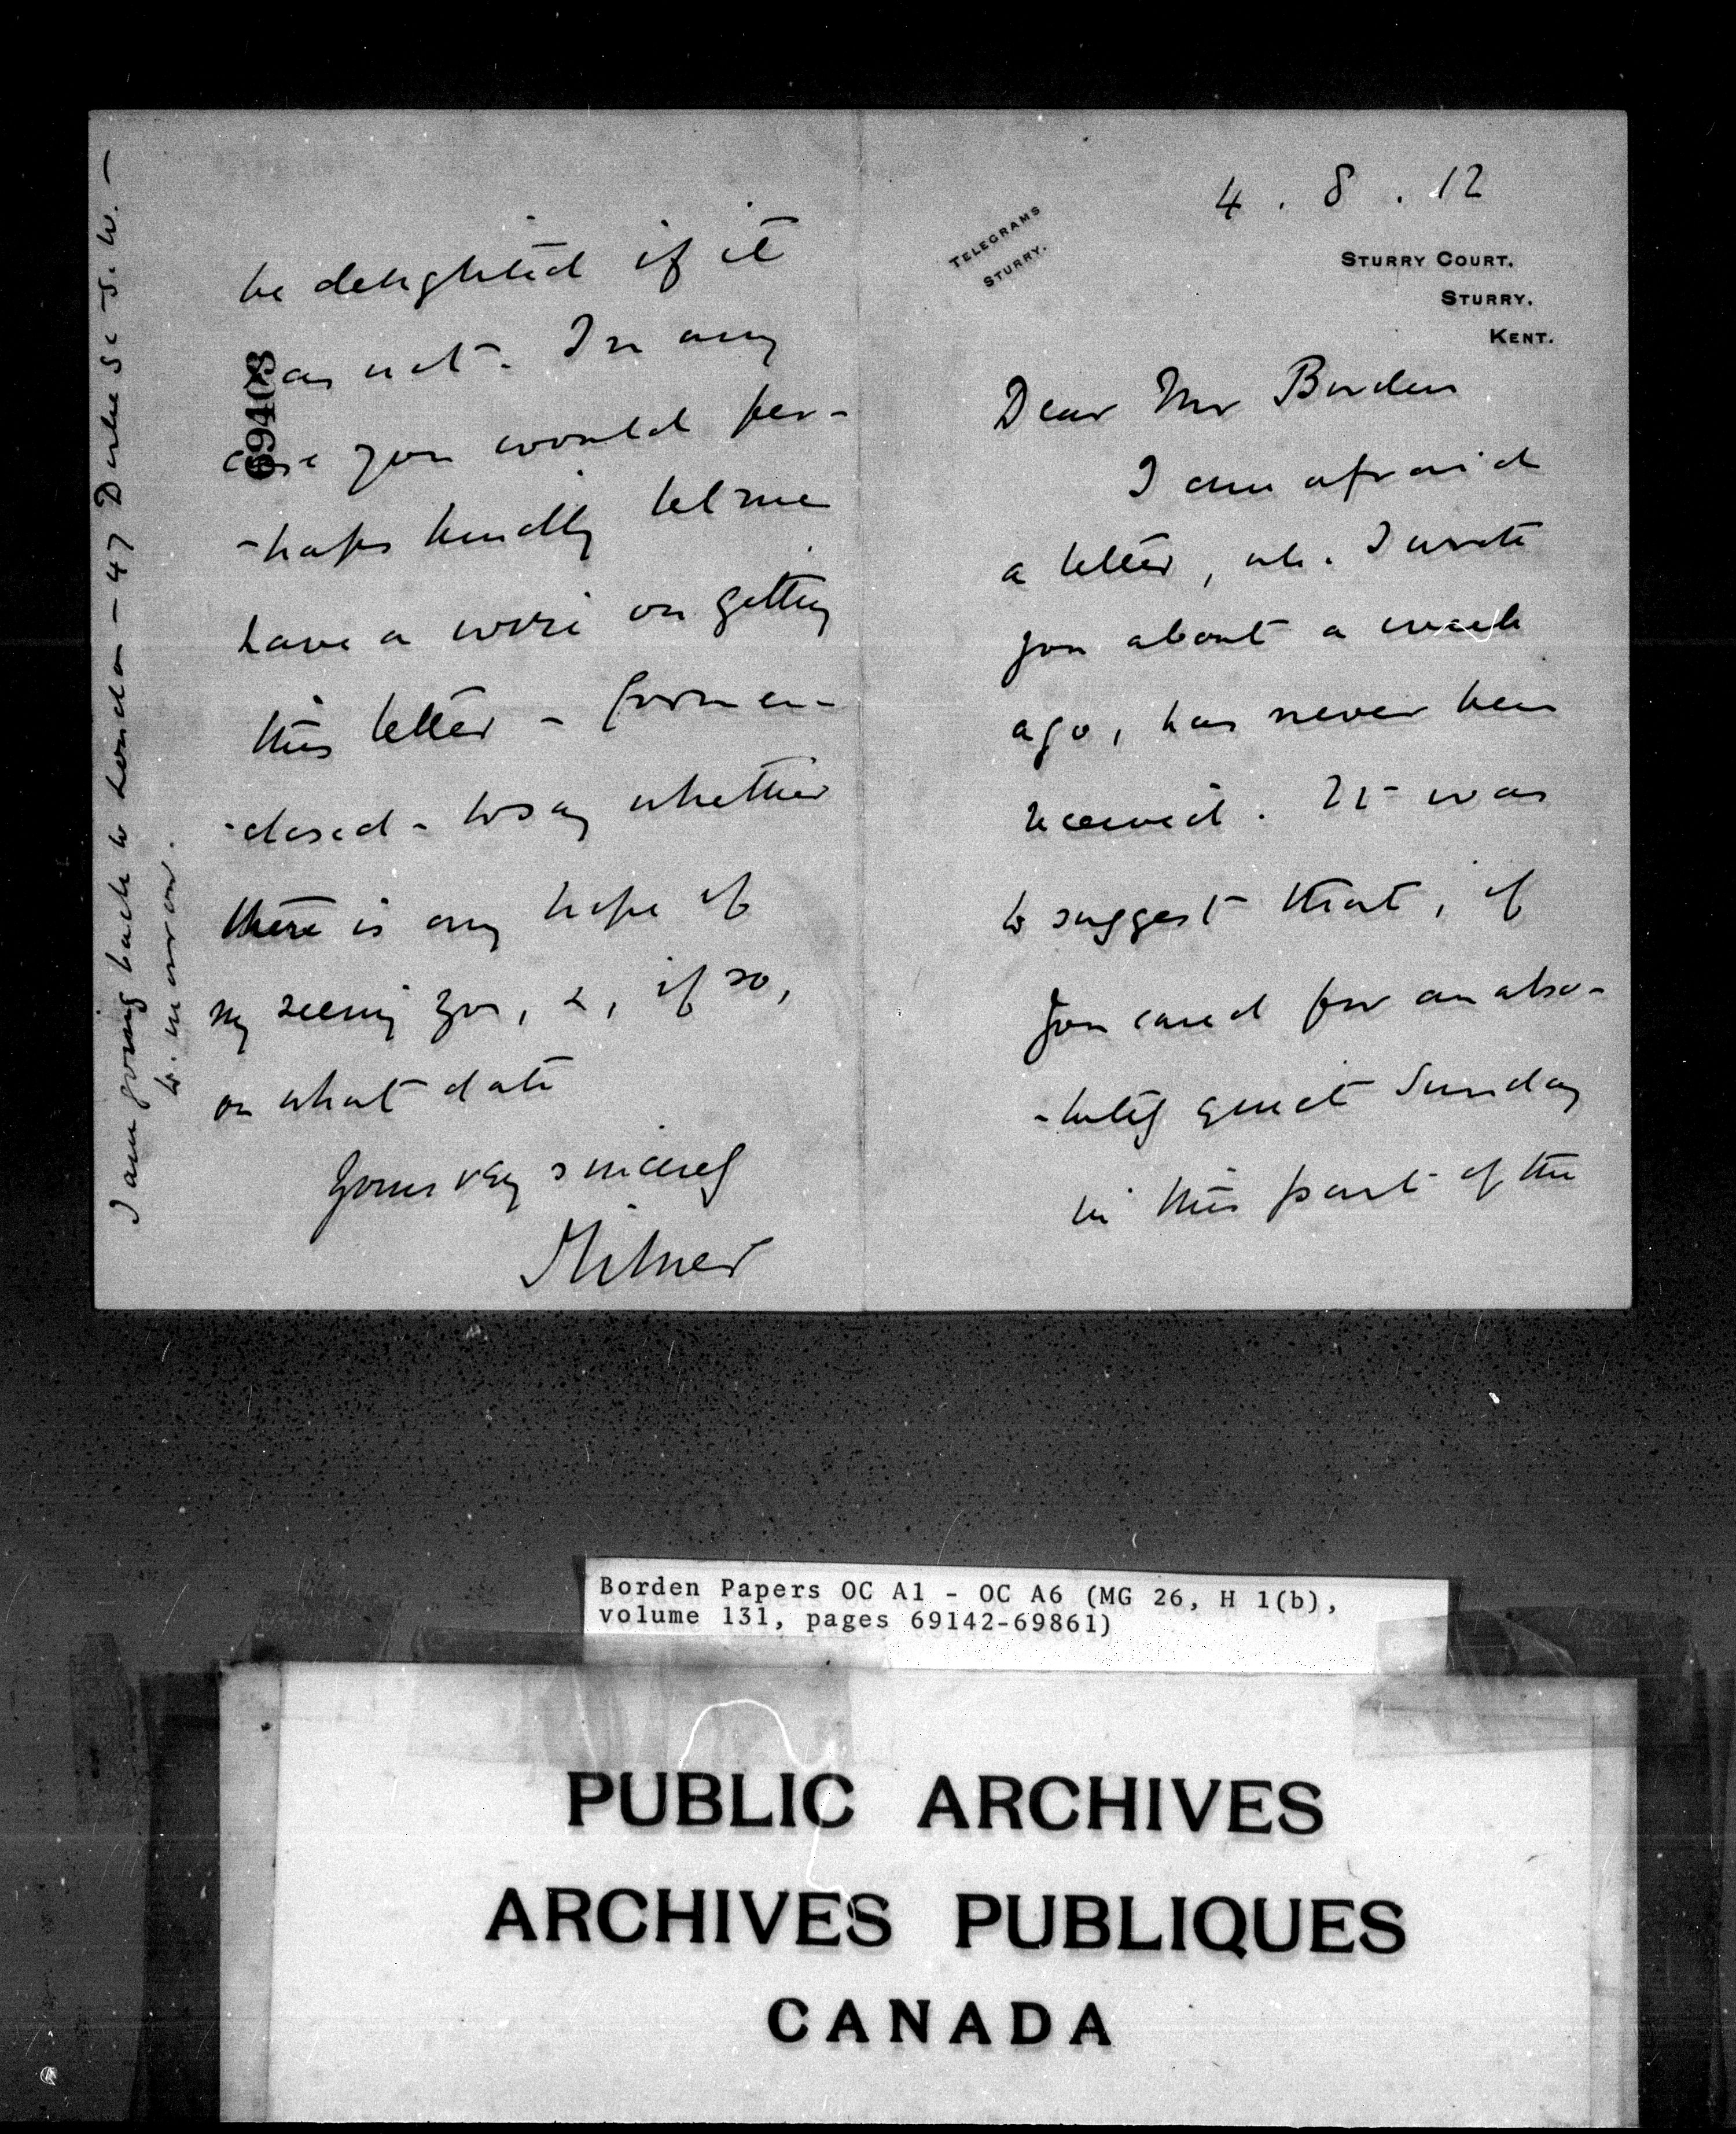 4 . 8 . 12
TELEGRAMS
STURRY.
STURRY COURT.
STURRY.
KENT.
Dear Mr Borden
I am afraid
a letter, wh. I wrote
you about a week
ago, has never been
received. It was
to suggest that, if
you cared for an abso-
-lutely quiet Sunday
in this part of the
be delighted if it
was not. In any
case you would per-
-haps kindly let me
have a wire on getting
this letter - form en-
-closed - to say whether
there is any hope of
my seeing you, &, if so,
on what date
Yours very sincerely
Milner
69403
I am going back to London - 47 Duke St S. W. -
to. morrow.
Borden Papers OC A1 - OC A6 (MG 26, H 1(b),
volume 131, pages 69142-69861)
PUBLIC ARCHIVES
ARCHIVES PUBLIQUES
CANADA